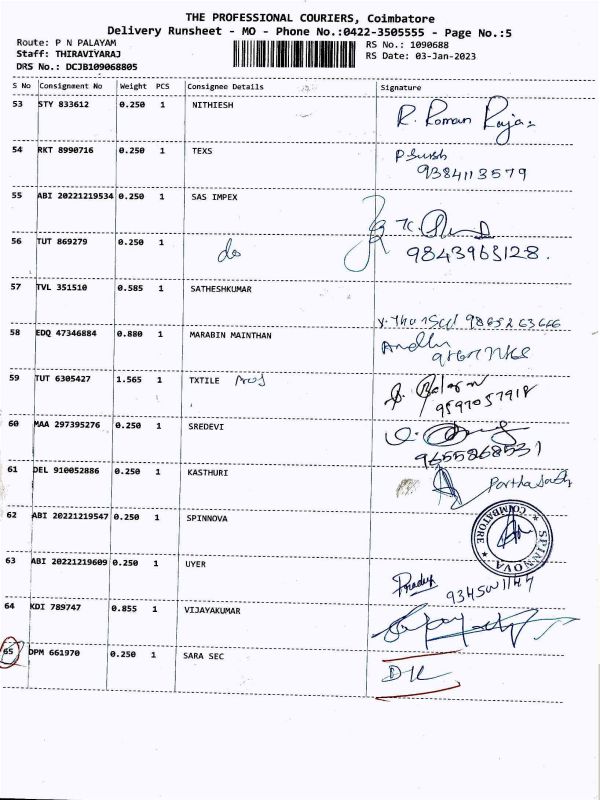 THE PROFESSIONAL COURIERS, Coimbatore
Delivery Runsheet - MO - Phone No.:0422-3505555 - Page No.:5
Route: P N PALAYAM
Staff: THIRAVIYARAJ
DRS No.: DCJB109068805
RS No.: 1090688
RS Date: 03-Jan-2023
S No Consignment No Weight PCS Consignee Details Signature
53 STY 833612 0.250 1 NITHIESH R. Roman Raja
54 RKT 8990716 0.250 1 TEXS P Suresh
9384113579
55 ABI 20221219534 0.250 1 SAS IMPEX
56 TUT 869279 0.250 1 do 9843963128.
57 TVL 351510 0.585 1 SATHESHKUMAR
58 EDQ 47346884 0.880 1 MARABIN MAINTHAN
59 TUT 6305427 1.565 1 TXTILE
9597057918
60 MAA 297395276 0.250 1 SREDEVI
9655868531
61 DEL 910052886 0.250 1 KASTHURI
62 ABI 20221219547 0.250 1 SPINNOVA
COIMBATORE
SPINNOVA
63 ABI 20221219609 0.250 1 UYER Pradeep
64 KDI 789747 0.855 1 VIJAYAKUMAR
65 DPM 661970 0.250 1 SARA SEC